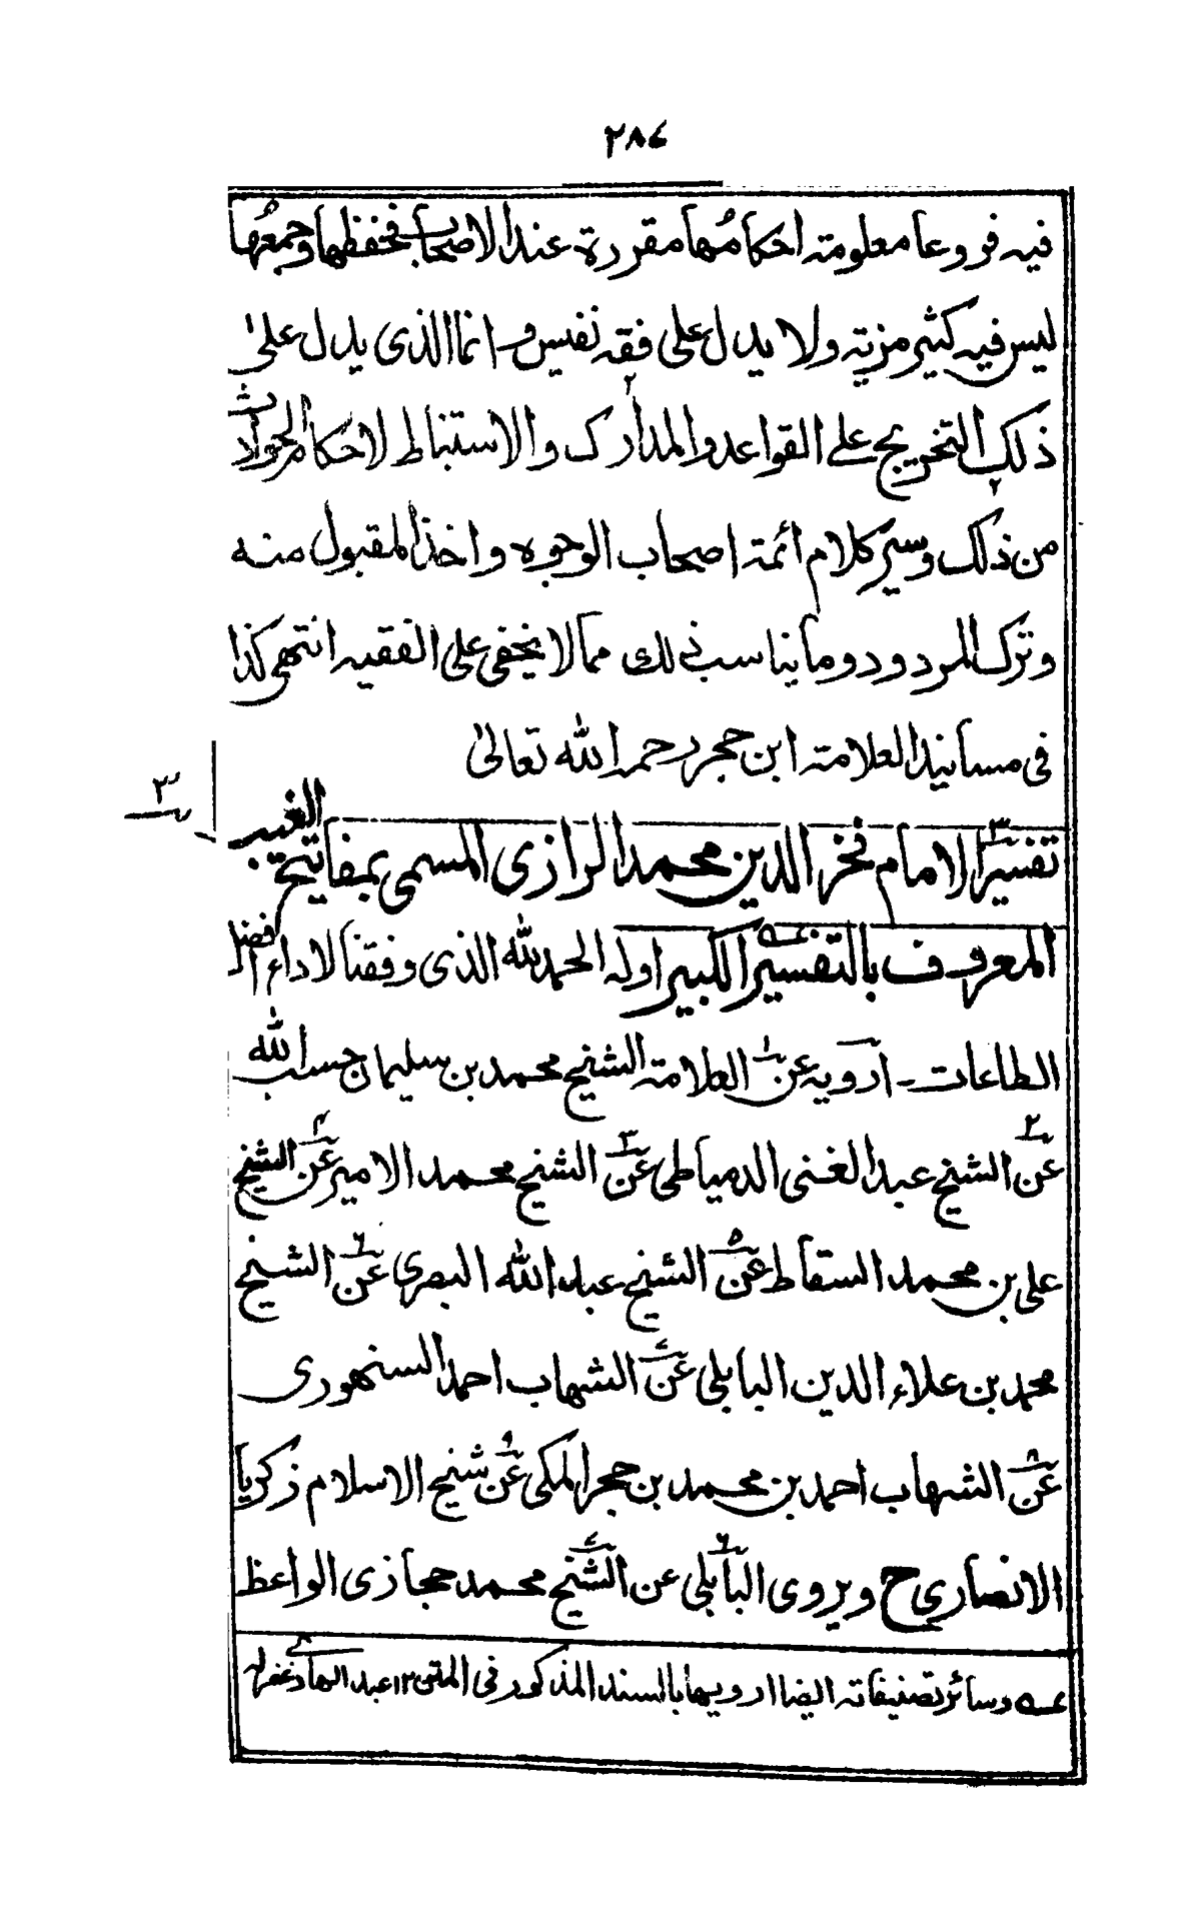 ٢٨٤
فيه فروعا معلومة احكامُها مقررة عند الاصحاب فحفظها وجمعُها
ليس فيه كثير مزية ولا يدل على فقه نفيس وانما الذى يدل على
ذلك التخريج على القواعد والمدارك والاستنباط لاحكام الحوادث
من ذلك وسير كلام ائمة اصحاب الوجوه واخذ المقبول منه
وترك المردود وما يناسب ذلك مما لا يخفى على الفقيه انتهى كذا
فى مسانيد العلامة ابن حجر رحمه الله تعالىٰ
٣
تفسير الامام فخر الدين محمد الرازى المسمى بمفاتيح الغيب
المعروف بالتفسير الكبير اوله الحمد لله الذى وفقنا لاداء افضل
الطاعات ـ ارويه عن ١ العلامة الشيخ محمد بن سليمان حسب الله
عن ٢ الشيخ عبد الغنى الدمياطى عن ٣ الشيخ محمد الامير عن ٤ الشيخ
على بن محمد السقاط عن ٥ الشيخ عبد الله البصرى عن ٦ الشيخ
محمد بن علاء الدين البابلى عن ٧ الشهاب احمد السنهورى
عن ٨ الشهاب احمد بن محمد بن حجر المكى عن ٩ شيخ الاسلام زكريا
الانصارى ح ويروى البابلى ٦ عن ٧ الشيخ محمد حجازى الواعظ
وسائر تصنيفاته ايضا ارويها بالسند المذكور فى المتن ١٢ عبد الهادى غفر له